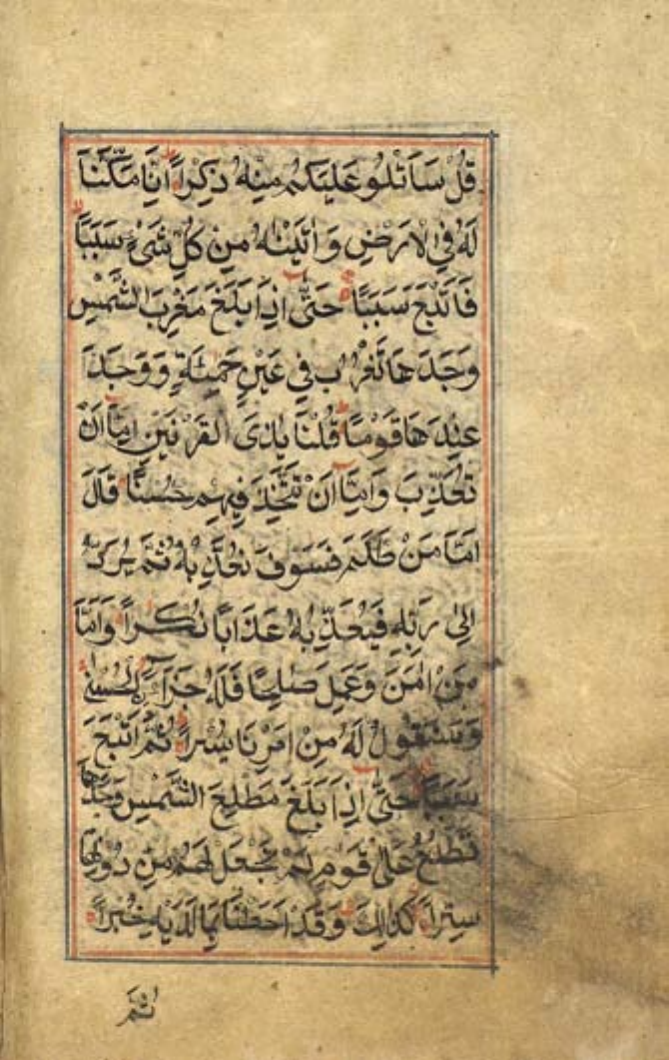 قُلْ سَاَتْلُوْ عَلَيْكُمْ مِنْهُ ذِكْرًا اِنَّا مَكَّنَّا
لَهٗ فِي الْاَرْضِ وَاٰتَيْنٰهُ مِنْ كُلِّ شَيْءٍ سَبَبًا
فَاَتْبَعَ سَبَبًا حَتّٰى اِذَا بَلَغَ مَغْرِبَ الشَّمْسِ
وَجَدَهَا تَغْرُبُ فِي عَيْنٍ حَمِئَةٍ وَوَجَدَ
عِنْدَهَا قَوْمًا قُلْنَا يٰذَى الْقَرْنَيْنِ اِمَّا اَنْ
تُعَذِّبَ وَاِمَّا اَنْ تَتَّخِذَ فِيْهِمْ حُسْنًا قَالَ
اَمَّا مَنْ ظَلَمَ فَسَوْفَ نُعَذِّبُهٗ ثُمَّ يُرَدُّ
اِلٰى رَبِّهٖ فَيُعَذِّبُهٗ عَذَابًا نُكْرًا وَاَمَّا
مَنْ اٰمَنَ وَعَمِلَ صٰلِحًا فَلَهٗ جَزَآءً الْحُسْنٰى
وَسَنَقُوْلُ لَهٗ مِنْ اَمْرِنَا يُسْرًا ثُمَّ اَتْبَعَ
سَبَبًا حَتّٰى اِذَا بَلَغَ مَطْلِعَ الشَّمْسِ وَجَدَهَا
تَطْلُعُ عَلٰى قَوْمٍ لَمْ نَجْعَلْ لَهُمْ مِنْ دُوْنِهَا
سِتْرًا كَذٰلِكَ وَقَدْ اَحَطْنَا بِمَا لَدَيْهِ خُبْرًا
ثُمَّ